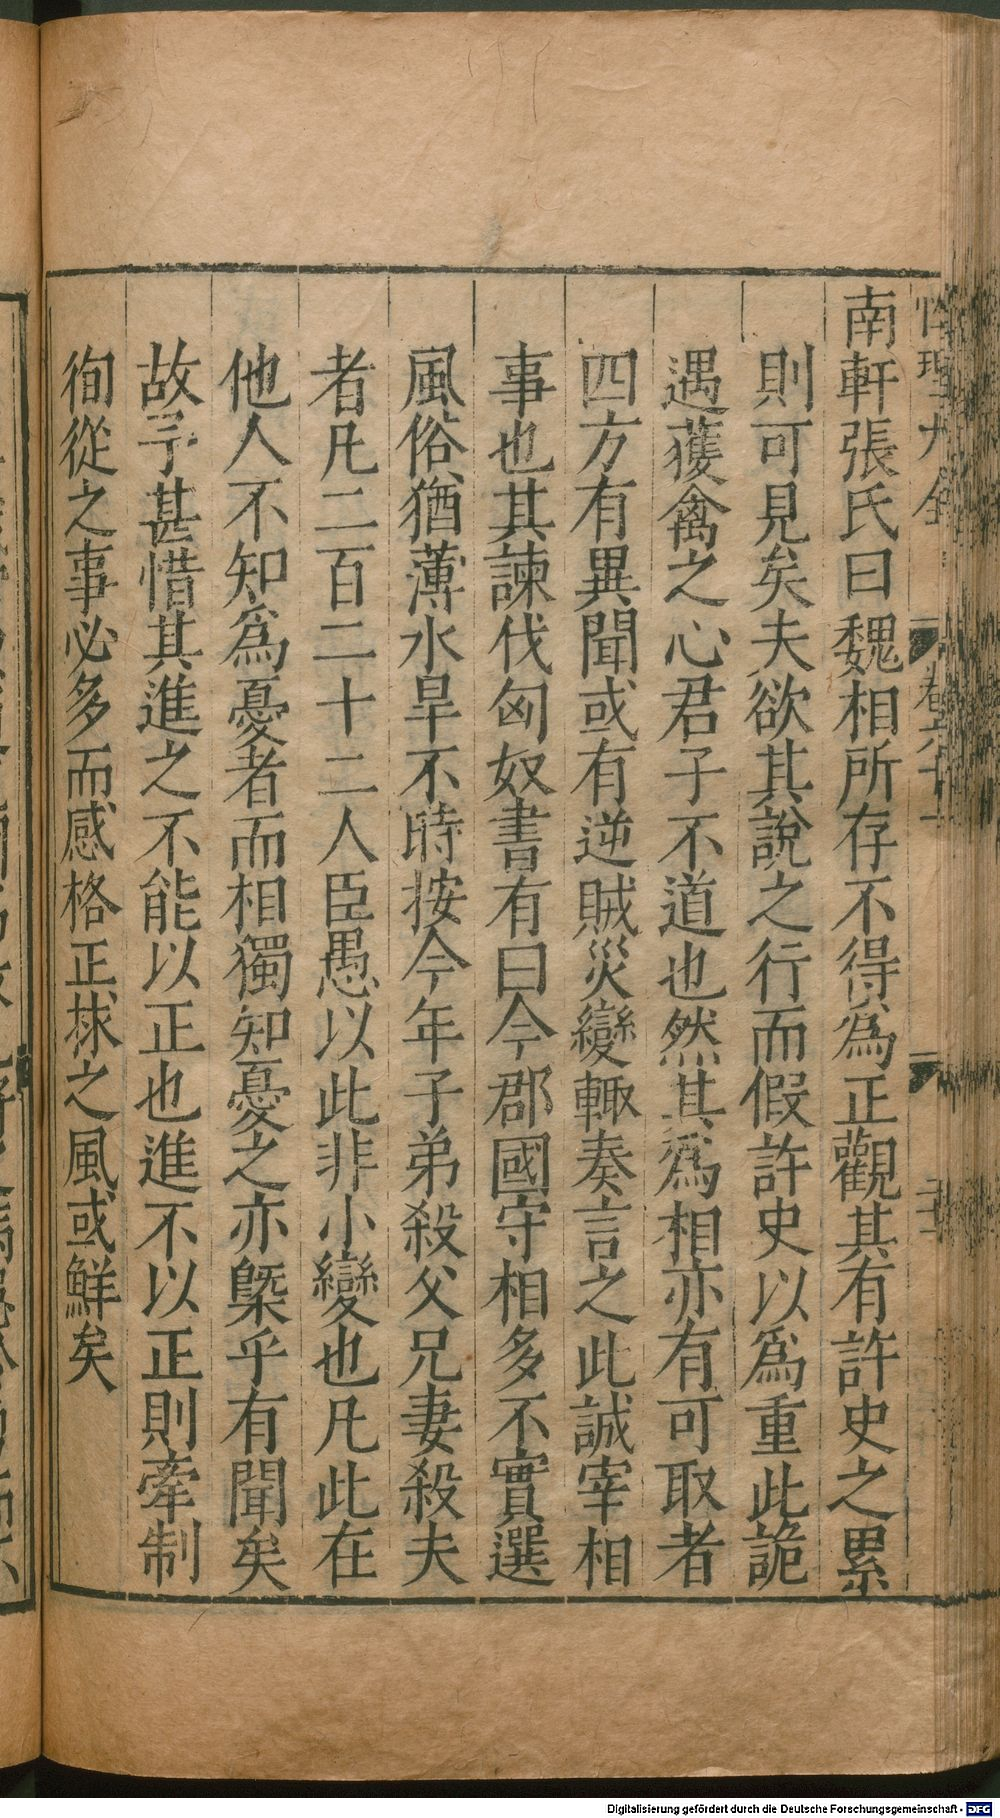 性理大全 卷六十一
南軒張氏曰魏相所存不得為正觀其有許史之累
則可見矣夫欲其說之行而假許史以為重此詭
遇獲禽之心君子不道也然其為相亦有可取者
四方有異聞或有逆賊災變輙奏言之此誠宰相
事也其諫伐匈奴書有曰今郡國守相多不實選
風俗猶薄水旱不時按今年子弟殺父兄妻殺夫
者凡二百二十二人臣愚以此非小變也凡此在
他人不知為憂者而相獨知憂之亦槩乎有聞矣
故予甚惜其進之不能以正也進不以正則牽制
徇從之事必多而感格正捄之風或鮮矣
Digitalisierung gefördert durch die Deutsche Forschungsgemeinschaft - DFG